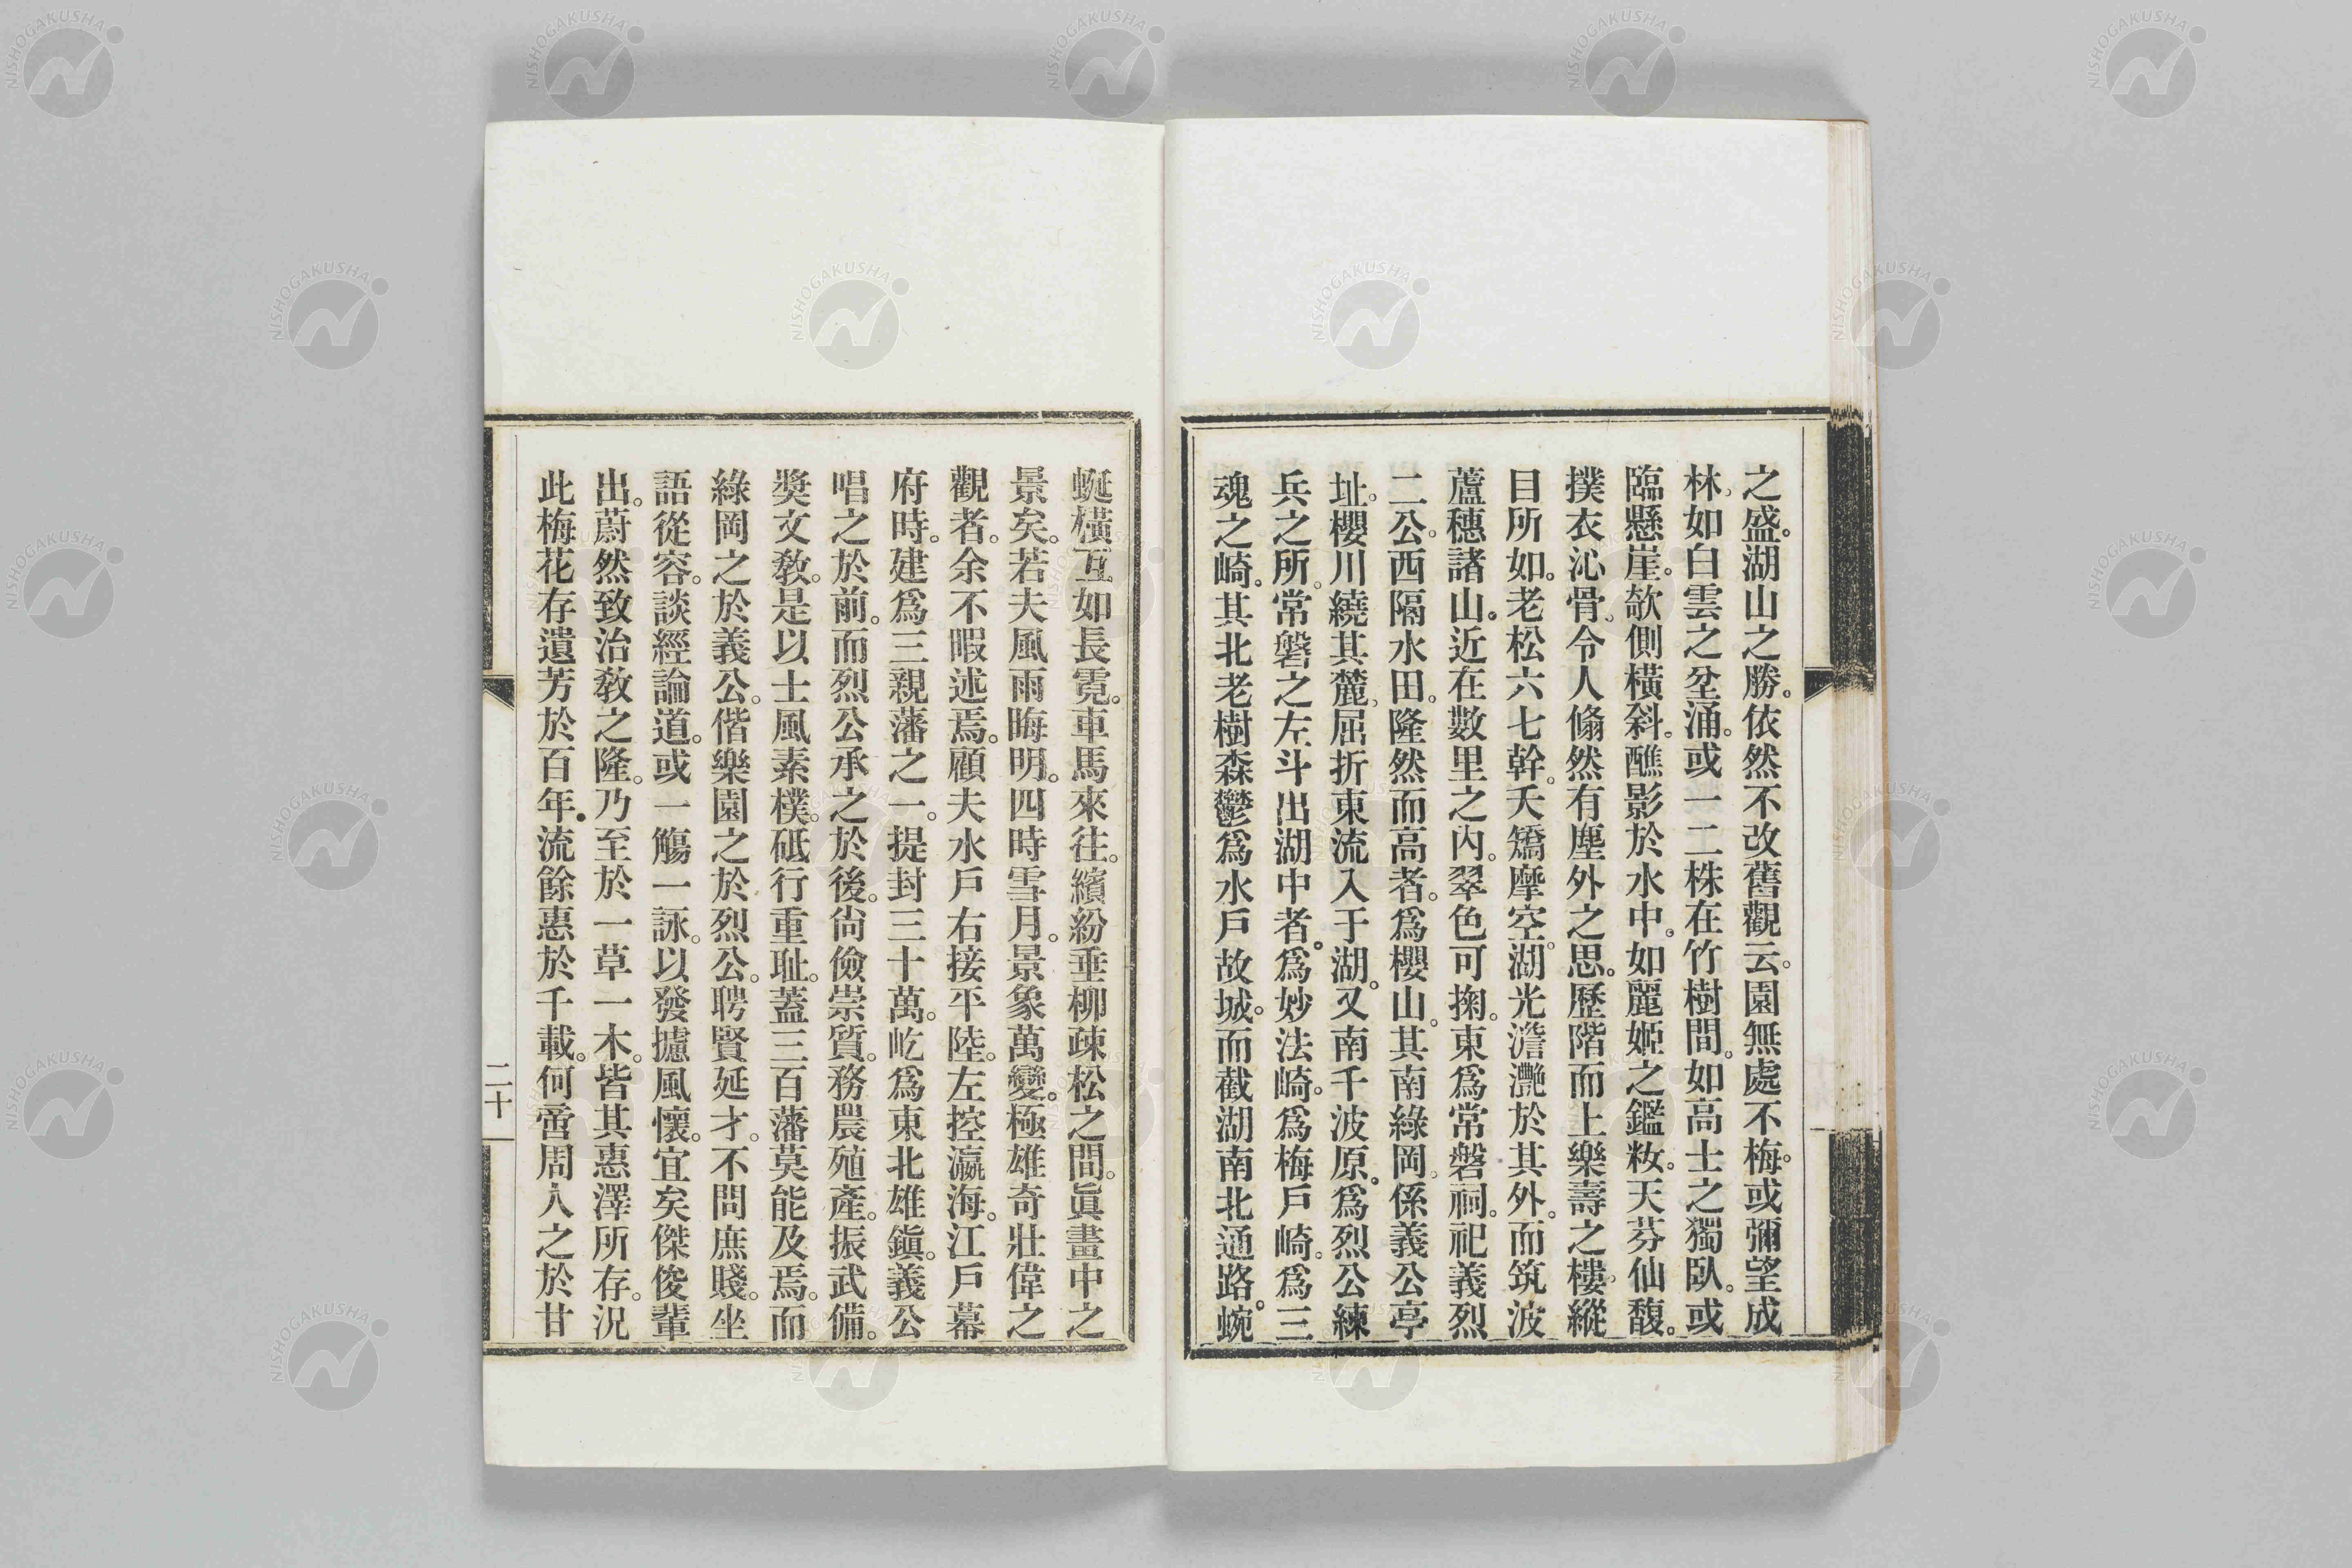 之盛。湖山之勝。依然不改舊觀云。園無處不梅。或彌望成
林。如白雲之坌涌。或一二株在竹樹間。如高士之獨臥。或
臨懸崖。欹側橫斜。蘸影於水中。如麗姬之鑑籹。天芬仙馥。
撲衣沁骨。令人翛然有塵外之思。歷階而上樂壽之樓。縱
目所如。老松六七幹。夭矯摩空。湖光澹灔於其外。而筑波
蘆穗諸山。近在數里之內。翠色可掬。東爲常磐祠。祀義烈
二公。西隔水田。隆然而高者。爲櫻山。其南綠岡。係義公亭
址。櫻川繞其麓。屈折東流入于湖。又南千波原。爲烈公練
兵之所。常磐之左斗出湖中者。爲妙法崎。爲梅戶崎。爲三
魂之崎。其北老樹森鬱爲水戶故城。而截湖南北通路。蜿
蜒橫亙如長霓。車馬來往。繽紛垂柳疎松之間。眞畫中之
景矣。若夫風雨晦明。四時雪月。景象萬變。極雄奇壯偉之
觀者。余不暇述焉。顧夫水戶右接平陸。左控瀛海。江戶幕
府時。建爲三親藩之一。提封三十萬。屹爲東北雄鎭。義公
唱之於前。而烈公承之於後。尙儉崇質。務農殖產。振武備。
獎文敎。是以士風素樸。砥行重耻。蓋三百藩莫能及焉。而
綠岡之於義公。偕樂園之於烈公。聘賢延才。不問庶賤。坐
語從容。談經論道。或一觴一詠。以發攄風懷。宜矣傑俊輩
出。蔚然致治敎之隆。乃至於一草一木。皆其惠澤所存。況
此梅花存遺芳於百年。流餘惠於千載。何啻周人之於甘
二十
NISHOGAKUSHA